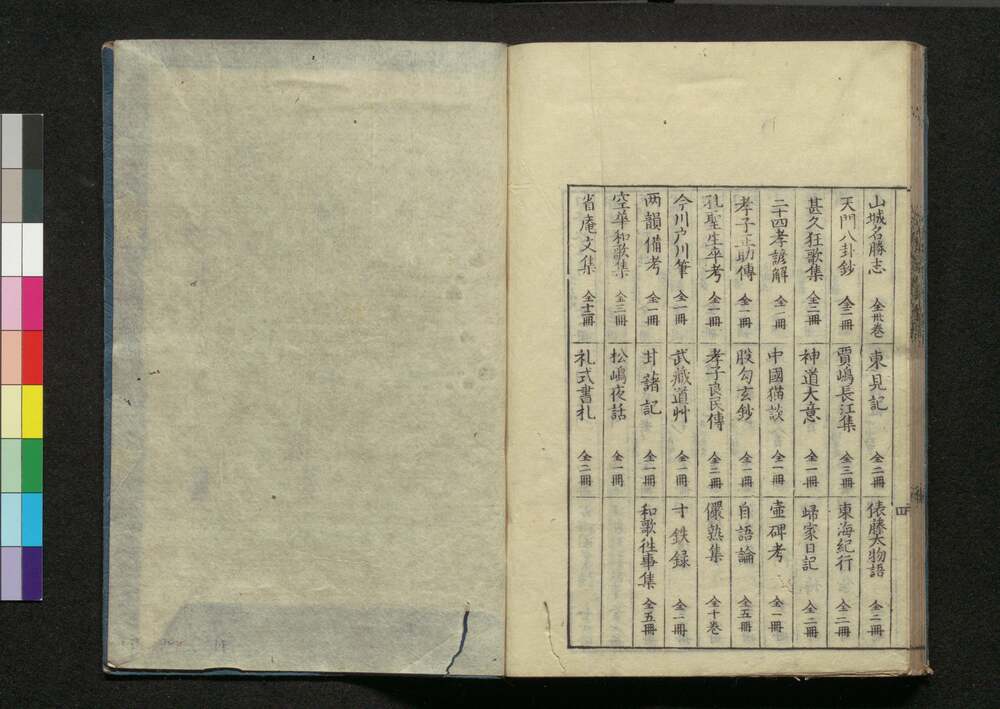 山城名勝志 全卅巻 東見記 全二冊 俵藤太物語 全二冊
天門八卦鈔 全二冊 賈嶋長江集 全三冊 東海紀行 全二冊
甚久狂歌集 全二冊 神道大意 全一冊 歸家日記 全二冊
二十四孝諺解 全一冊 中國猫談 全一冊 壷碑考 全一冊
孝子正助傳 全一冊 股勾玄鈔 全二冊 自語論 全五冊
孔聖生卒考 全一冊 孝子良民傳 全二冊 儼熟集 全十巻
今川戸川筆 全一冊 武藏道艸 全一冊 寸鉄録 全一冊
两韻備考 全一冊 封諸記 全一冊 和歌徃事集 全五冊
空華和歌集 全三冊 松嶋夜話 全一冊
省庵文集 全十二冊 礼式書札 全二冊
四